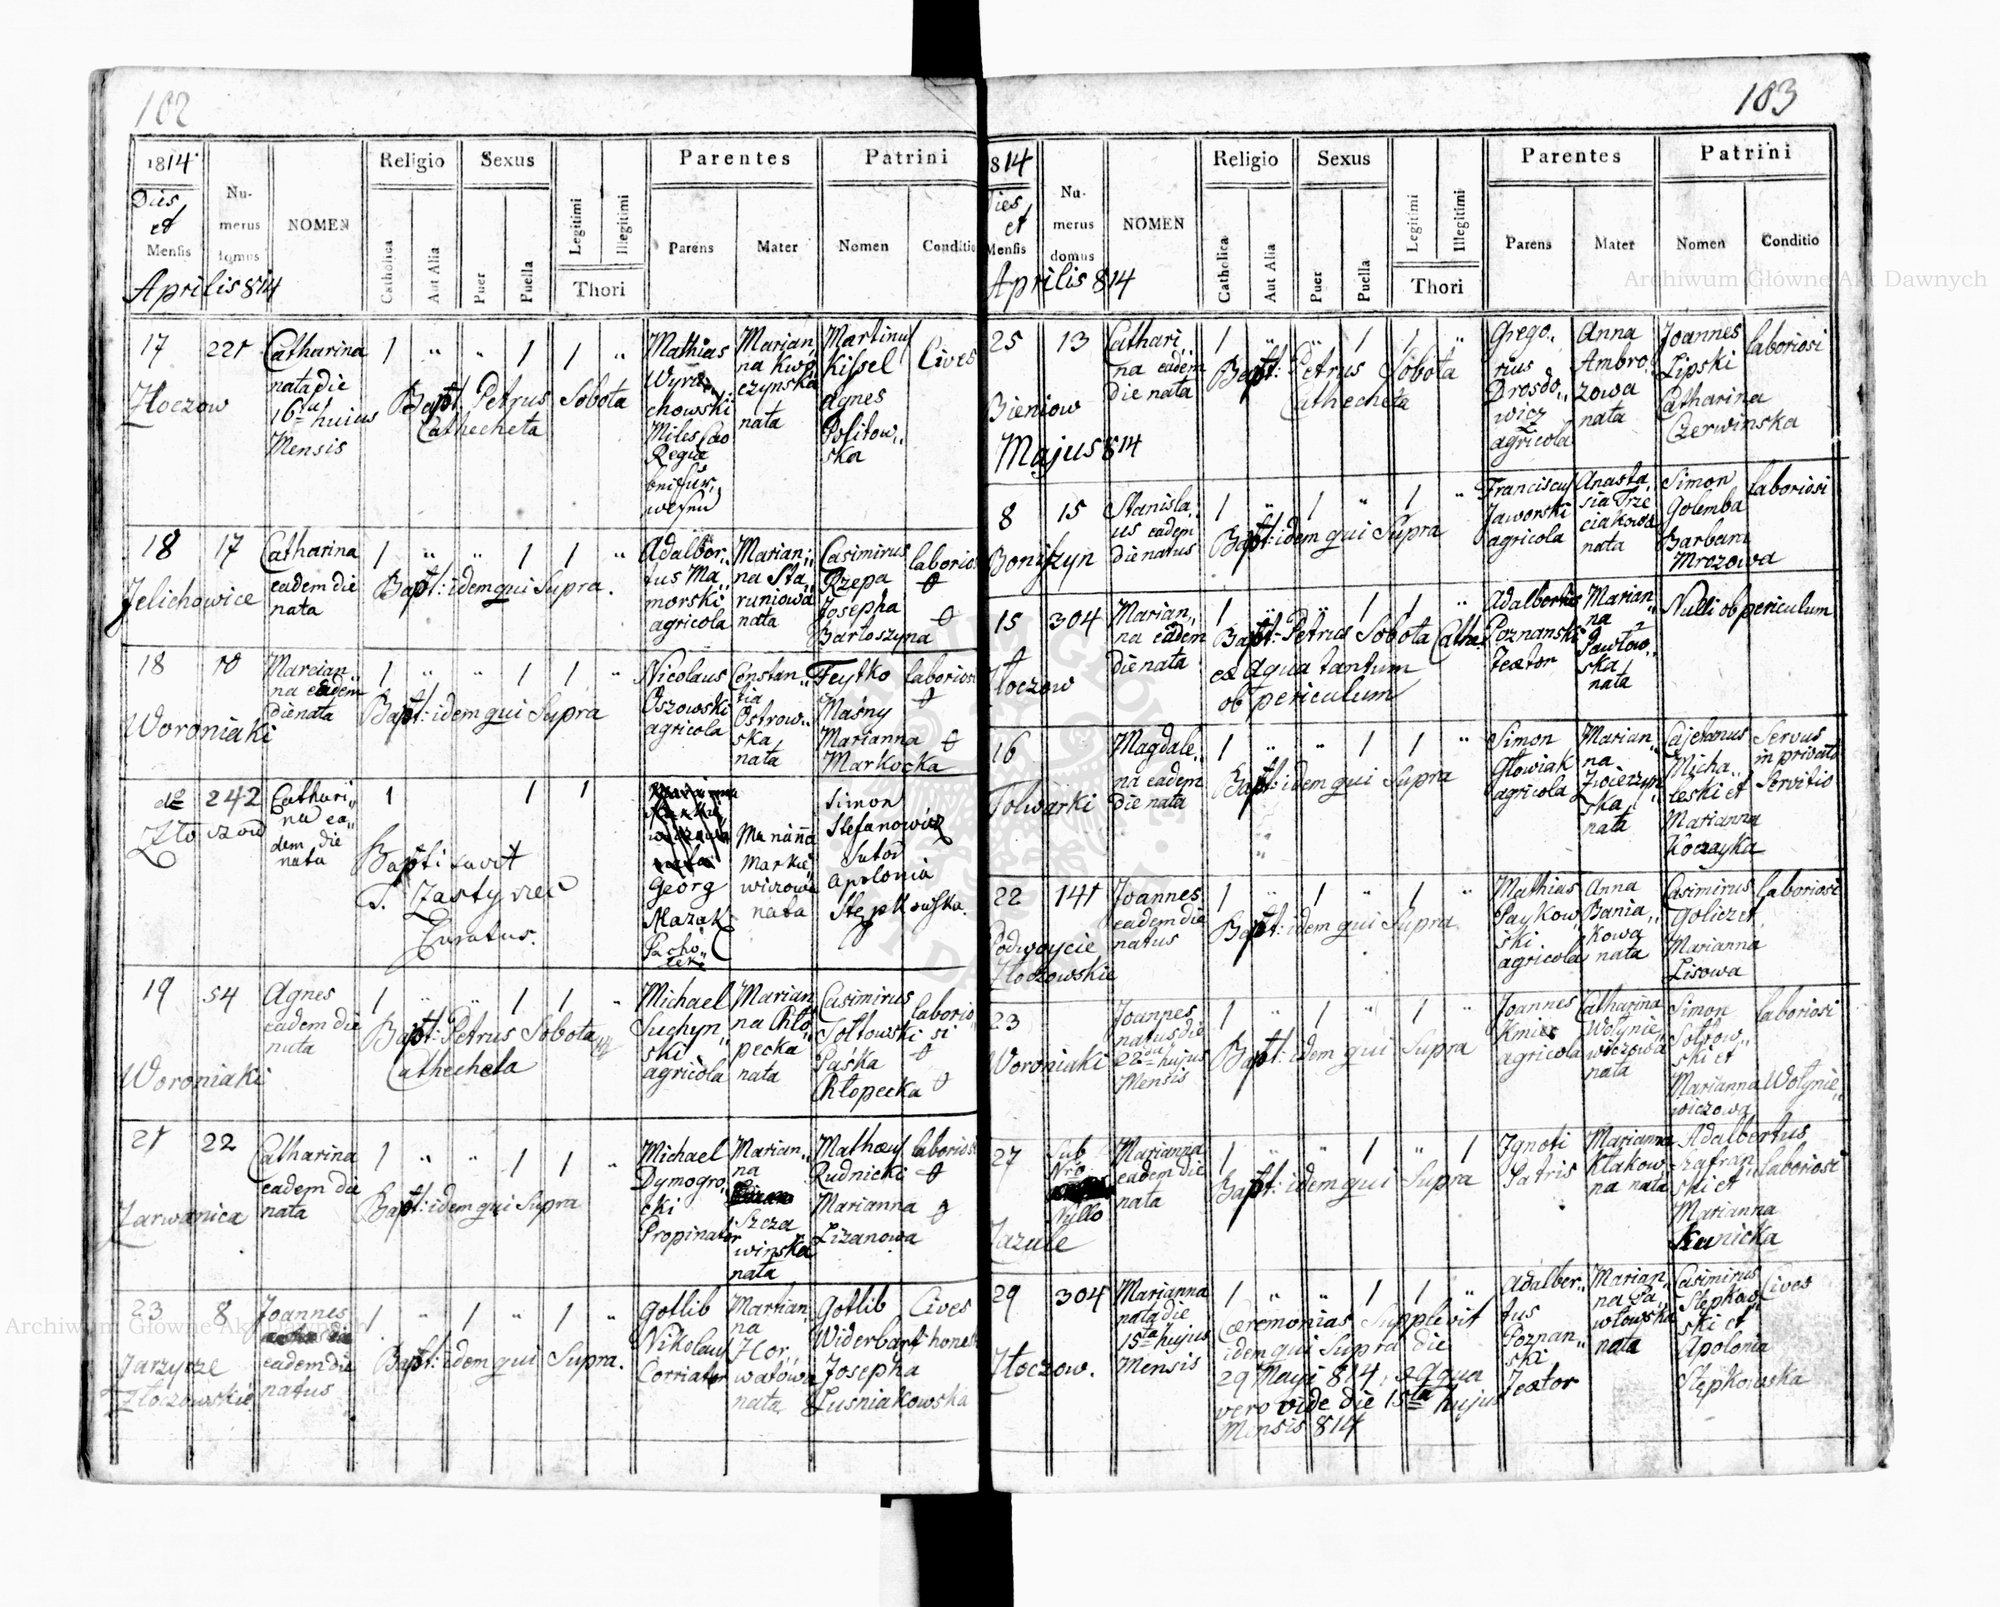 102
1814
Dies
et
Mensis
Numerus
domus
NOMEN
Religio
Catholica
Aut Alia
Sexus
Puer
Puella
Legitimi
Illegitimi
Thori
Parentes
Parens
Mater
Patrini
Nomen
Conditio
Aprilis 814
17
Zloczow
221
Catharina
nata die
16ta hujus
Mensis
1 " " 1 1 "
Bapt: Petrus Sobota
Cathecheta
Mathias
chowski
Miles
Marian„
na
czynska
nata
Martinus
Kissel
Agnes
Positow„
ska
Cives
18
Jelichowice
17
Catharina
eadem die
nata
1 " " 1 1 "
Bapt: idem qui Supra.
Adalber„
tus Ma„
morski
agricola
Marian„
na Sta„
runiowa
nata
Casimirus
Rzepa
Josepha
Bartoszyna
laborio
18
Woroniaki
10
Marian„
na eadem
die nata
1 " " 1 1 "
Bapt: idem qui Supra
Nicolaus
Oszowski
agricola
Constan„
tia
Ostrow„
ska
nata
Feytko
Masny
Marianna
Markocka
laboriosi
Zlo czow
242
Cathari„
na ea„
dem die
nata
1 1 1
Baptisavit
Curatus.
Georg
Mazak
Pacho„
lek
Marianna
Markie„
wiczowa
nata
Simon
Stefanowicz
Sutor
Apolonia
Stępkowska.
19
Woroniaki
54
Agnes
eadem die
nata
1 " " 1 1 "
Bapt: Petrus Sobota
Cathecheta
Michael
Suchyn„
ski
agricola
Marian
na Kło„
pecka
nata
Casimirus
Soltowski
Paska
Kłopecka
laborio
si
21
Zarwanica
22
Catharina
eadem die
nata
1 " " 1 1 "
Bapt: idem qui Supra
Michael
Dymogro„
cki
Propinator
Marian„
na
Szcza
winska
nata
Mathæus
Rudnicki
Marianna
Lizanowa
laboriosi
23
Zarzycze
Złoczowskie
8
Joannes
eadem die
natus
1 " 1 " 1 "
Bapt: idem qui Supra.
Gotlib
Nikolaus
Corriator
Marian„
na
Hor„
watowa
nata
Gotlib
Widerbart
Josepha
Lusniakowska
Cives
honest
103
814
Dies
et
Mensis
Numerus
domus
NOMEN
Religio
Catholica
Aut Alia
Sexus
Puer
Puella
Legitimi
Illegitimi
Thori
Parentes
Parens
Mater
Patrini
Nomen
Conditio
Aprilis 814
25
Bieniow
13
Cathari„
na eadem
die nata
1 " " 1 1 "
Bapt: Petrus Sobota
Cathecheta
Grego„
rius
Drosdo„
wicz
agricola
Anna
Ambro„
zowa
nata
Joannes
Lipski
Catharina
Czerwinska
laboriosi
Majus 814
8
Boniszyn
15
Stanisla„
us eadem
die natus
1 " 1 " 1 "
Bapt: idem qui Supra
Franciscus
Jaworski
agricola
Anasta„
sia Trze
ciakowa
nata
Simon
Golemba
Barbara
Mrozowa
laboriosi
15
Złoczow
304
Marian„
na eadem
die nata
1 " " 1 1 "
Bapt: Petrus Sobota Cathe
ex Aqua tantum
ob periculum
Adalbertus
Poznanski
Textor
Marian„
na
Pawlow„
ska
nata
Nulli ob periculum
16
Folwarki
Magdale„
na eadem
die nata
1 " " 1 1 "
Bapt: idem qui Supra
Simon
Głowiak
agricola
Marian„
na
Zwierzyn„
ska
nata
Cajetanus
Micha„
leski et
Marianna
Servus
in privato
Servitio
22
Podwoycie
Złoczowskie
141
Joannes
eadem die
natus
1 " 1 " 1 "
Bapt: idem qui Supra
Mathias
Paykow„
ski
agricola
Anna
Bania„
kowa
nata
Casimirus
Golicz et
Marianna
Lisowa
laboriosi
23
Woroniaki
Joannes
natus die
22da hujus
Mensis
1 " 1 " 1 "
Bapt: idem qui Supra
Joannes
Kmiec
agricola
Catharina
Wołynie„
wiczowa
nata
Simon
Soltow„
ski et
Marianna Wołynie„
wiczowa
laboriosi
27
Zazule
Sub
Nro
Nullo
Marianna
eadem die
nata
1 " " 1 " 1
Bapt: idem qui Supra
Ignoti
Patris
Marianna
Klakow„
na nata
Adalbertus
Szafran„
ski et
Marianna
Kunicka
laboriosi
29
Złoczow.
304
Marianna
nata die
15ta hujus
Mensis
1 " " 1 1 "
Cæremonias Supplevit
idem qui Supra die
29 Maji 814, ex Aqua
vero vide die 15ta hujus
Mensis 814
Adalber„
tus
Poznan„
ski
Textor
Marian„
na Pa„
wlowska
nata
Casimirus
Stępkow„
ski et
Apolonia
Stępkowska
Cives
Archiwum Główne Akt Dawnych
Archiwum Główne Akt Dawnych